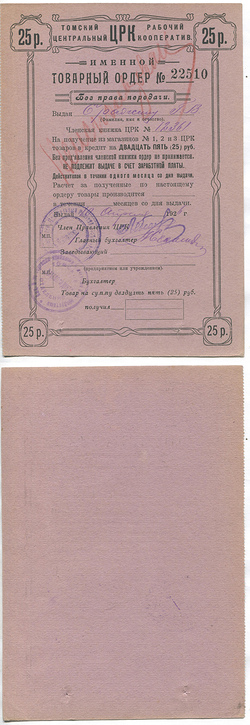 25 р. ТОМСКИЙ ЦЕНТРАЛЬНЫЙ ЦРК РАБОЧИЙ КООПЕРАТИВ. 25 р.
ИМЕННОЙ
ТОВАРНЫЙ ОРДЕР № 22510
Без права передачи.
Выдан
(Фамилия, имя и отчество)
Членская книжка ЦРК №
На получение из магазинов № 1, 2 и 3 ЦРК
товаров в кредит на ДВАДЦАТЬ ПЯТЬ (25) руб.
Без предъявления членской книжки ордер не принимается.
НЕ ПОДЛЕЖИТ ВЫДАЧЕ В СЧЕТ ЗАРАБОТНОЙ ПЛАТЫ.
Действителен в течении одного месяца со дня выдачи.
Расчет за полученные по настоящему
ордеру товары производится
в течении месяцев со дня выдачи.
Выдан 192 г.
Член Правления ЦРК
Главный бухгалтер
Заведывающий
М.П.
(предприятия или учреждения)
М.П.
Бухгалтер
Товар на сумму двадцать пять (25) руб.
получил
25 р. 25 р.